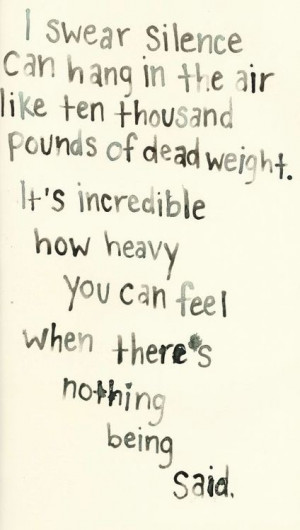 I swear silence
can hang in the air
like ten thousand
pounds of dead weight.
It's incredible
how heavy
you can feel
when there's
nothing
being
said.